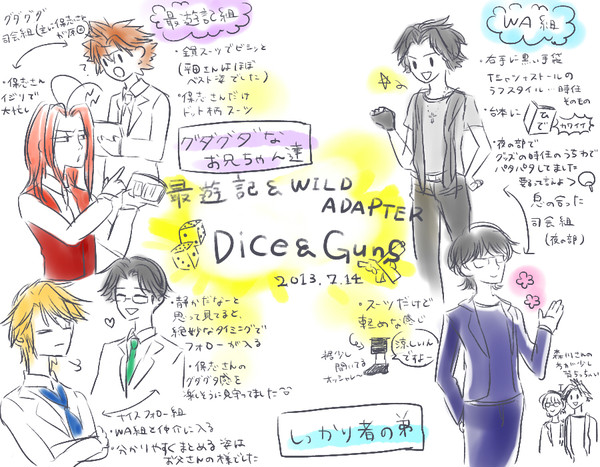 グダグダ
司会組(主に保志さんが原因)
最遊記組
・鎖スーツでビシッと
(平田さんはほぼ
ベスト姿でした)
・保志さんだけ
ドット柄スーツ
・保志さん
イジリで
大忙し
グダグダな
お兄ちゃん達
WA組
・右手に黒い手袋
Tシャツ+ストールの
ラフスタイル…時任
そのもの
・台本に
ひで
カワイイ
・夜の部で
グッズの時任のうちわで
パタパタしてました
息の合った
司会組
(夜の部)
最遊記&WILD
ADAPTER
Dice&Guns
2013.7.14
・静かだなーと
思って見てると、
絶妙なタイミングで
フォローが入る
・保志さんの
グダグダ感を
楽しそうに見守ってました
ナイスフォロー組
・WA組と仲介に入る
・分かりやすくまとめる姿は
お父さんの様でした
・スーツだけど
軽めな感じ
裾少し
開いてる
オッシャレ〜
涼しいん
ですよー
しっかり者の弟
森川さんの
方が少し